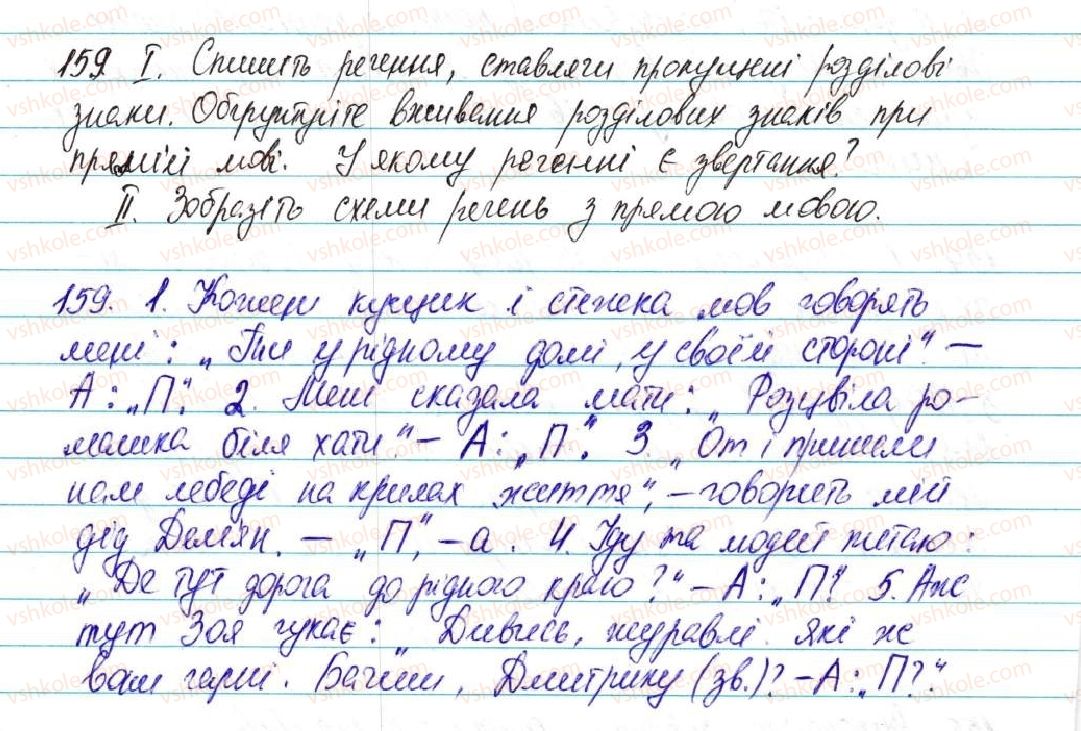 159 I. Спишіть речення, ставлячи пропущені розділові
знаки. Обґрунтуйте вживання розділових знаків при
прямій мові. У якому реченні є звертання?
II. Зобразіть схеми речень з прямою мовою.
159. 1. Кожен кущик і стежка мов говорять
мені: „Ти у рідному домі, у своїй стороні". —
А: „П". 2. Мені сказала мати: „Розцвіла ро-
машка біля хати". — А: „П". 3. „От і принесли
нам лебеді на крилах життя", — говорить мій
дід Дем'ян. — „П", — а. 4. Іду та людей питаю:
„Де тут дорога до рідного краю?" — А: „П?" 5. Аж
тут Зоя гукає: „Дивись, журавлі. які ж
вам гарні. Бачиш, Дмитрику (зв.)? — А: „П?".